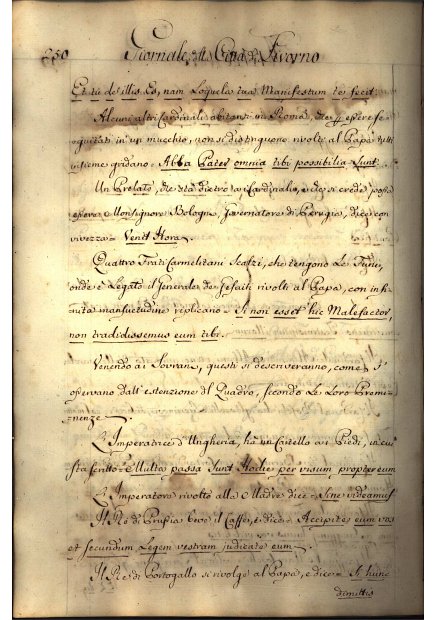 250 Giornale della Città di Livorno
Et tu de illis es, nam Loquela tua Manifestum te fecit.
Alcuni altri Cardinali abitanti in Roma, che p essere
in un mucchio, non si distinguono rivolti al Papa tutti
insieme gridano = Abba Pater omnia tibi possibilia Sunt.
Un Prelato, che sta dietro ta Cardinali, e che si crede possa
essere Monsignore Bologna, Governatore di Perugia, dice con
vivezza = Venit Hora.
Quattro Frati Carmelitani Scalzi, che tengono Le Funi,
onde è Legato il Generale de Gesuiti rivolti al Papa, con infi
nita mansuetudine replicano = Si non esset hic Malefactor,
non tradidissemus eum tibi.
Venendo ai Sovrani, questi si descriveranno, come s'
osservano dall'estenzione del Quadro, secondo Le Loro Premi
nenze.
L'Imperatrice d'Ungheria, ha un Cartello ai Piedi, in cui
sta scritto = Multa passa Sunt Hodie per visum propter eum
L'Imperatore rivolto alla Madre dice = Sine videamus
Il Rè di Prussia beve il Caffè, e dice = Accipite eum vos
et secundum Legem vestram judicate eum.
Il Rè di Portogallo si rivolge al Papa, e dice = Si hunc
dimittis